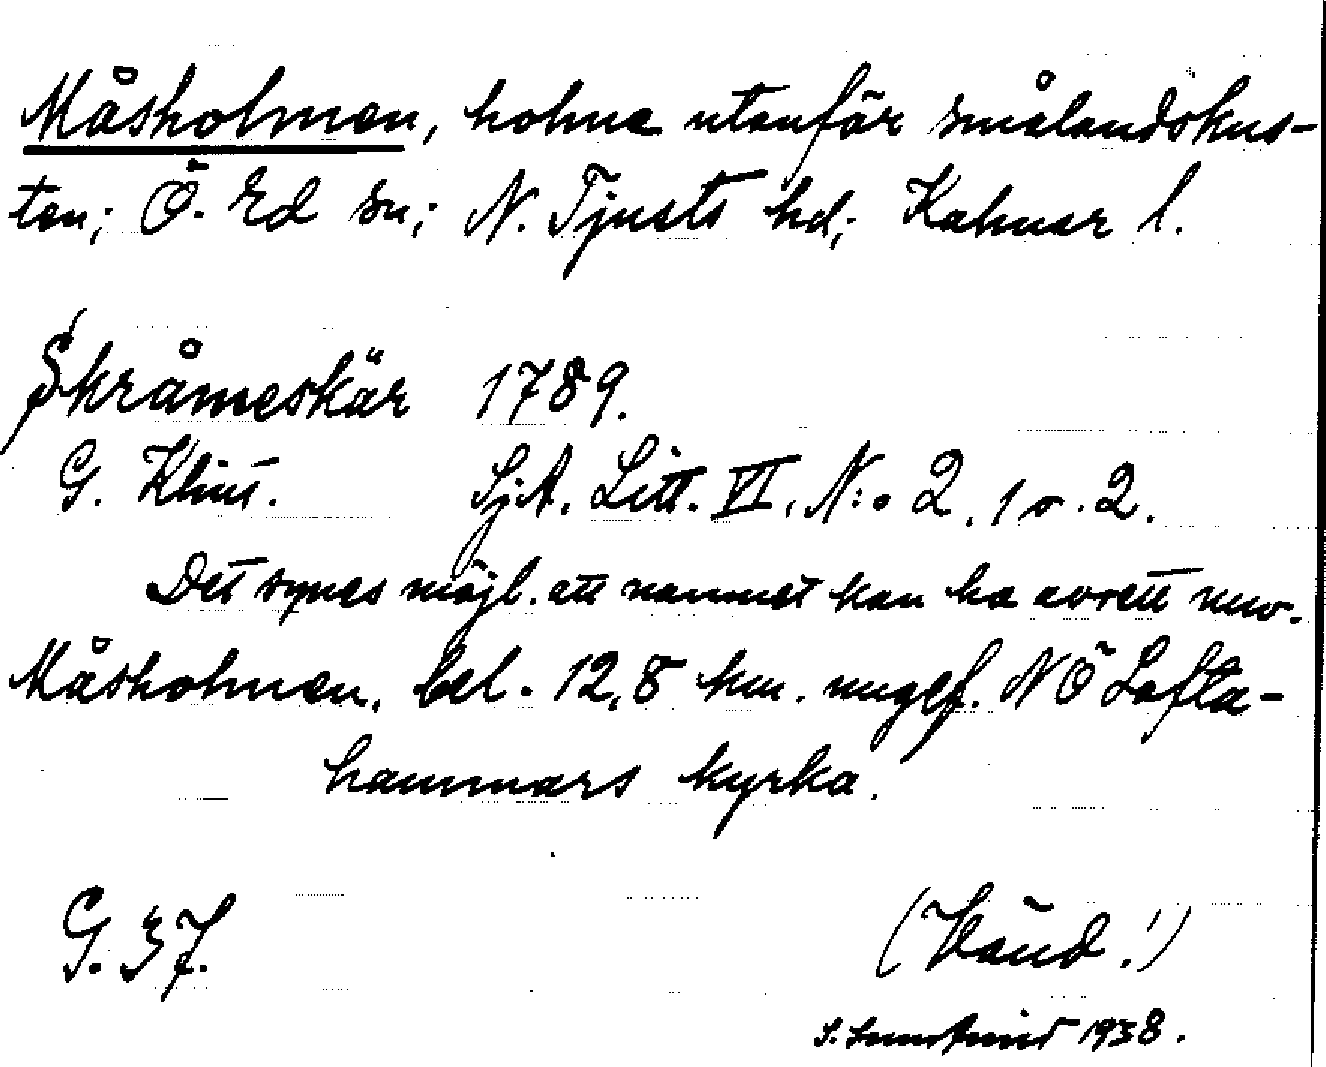 Måsholmen, holme utanför smålandskus-
ten; Ö. Ed sn; N. Tjusts hd; Kalmar l.
Skråmeskär 1789.
G. Klint. SjA. Litt. VI, N:o 2, 1 o. 2.
Det synes möjl. att namnet kan ha avsett nuv.
Måsholmen, bel. 12,8 km. ungef. NÖ Lofta-
hammars kyrka.
G. 37.
(Vänd!)
S. 1938.